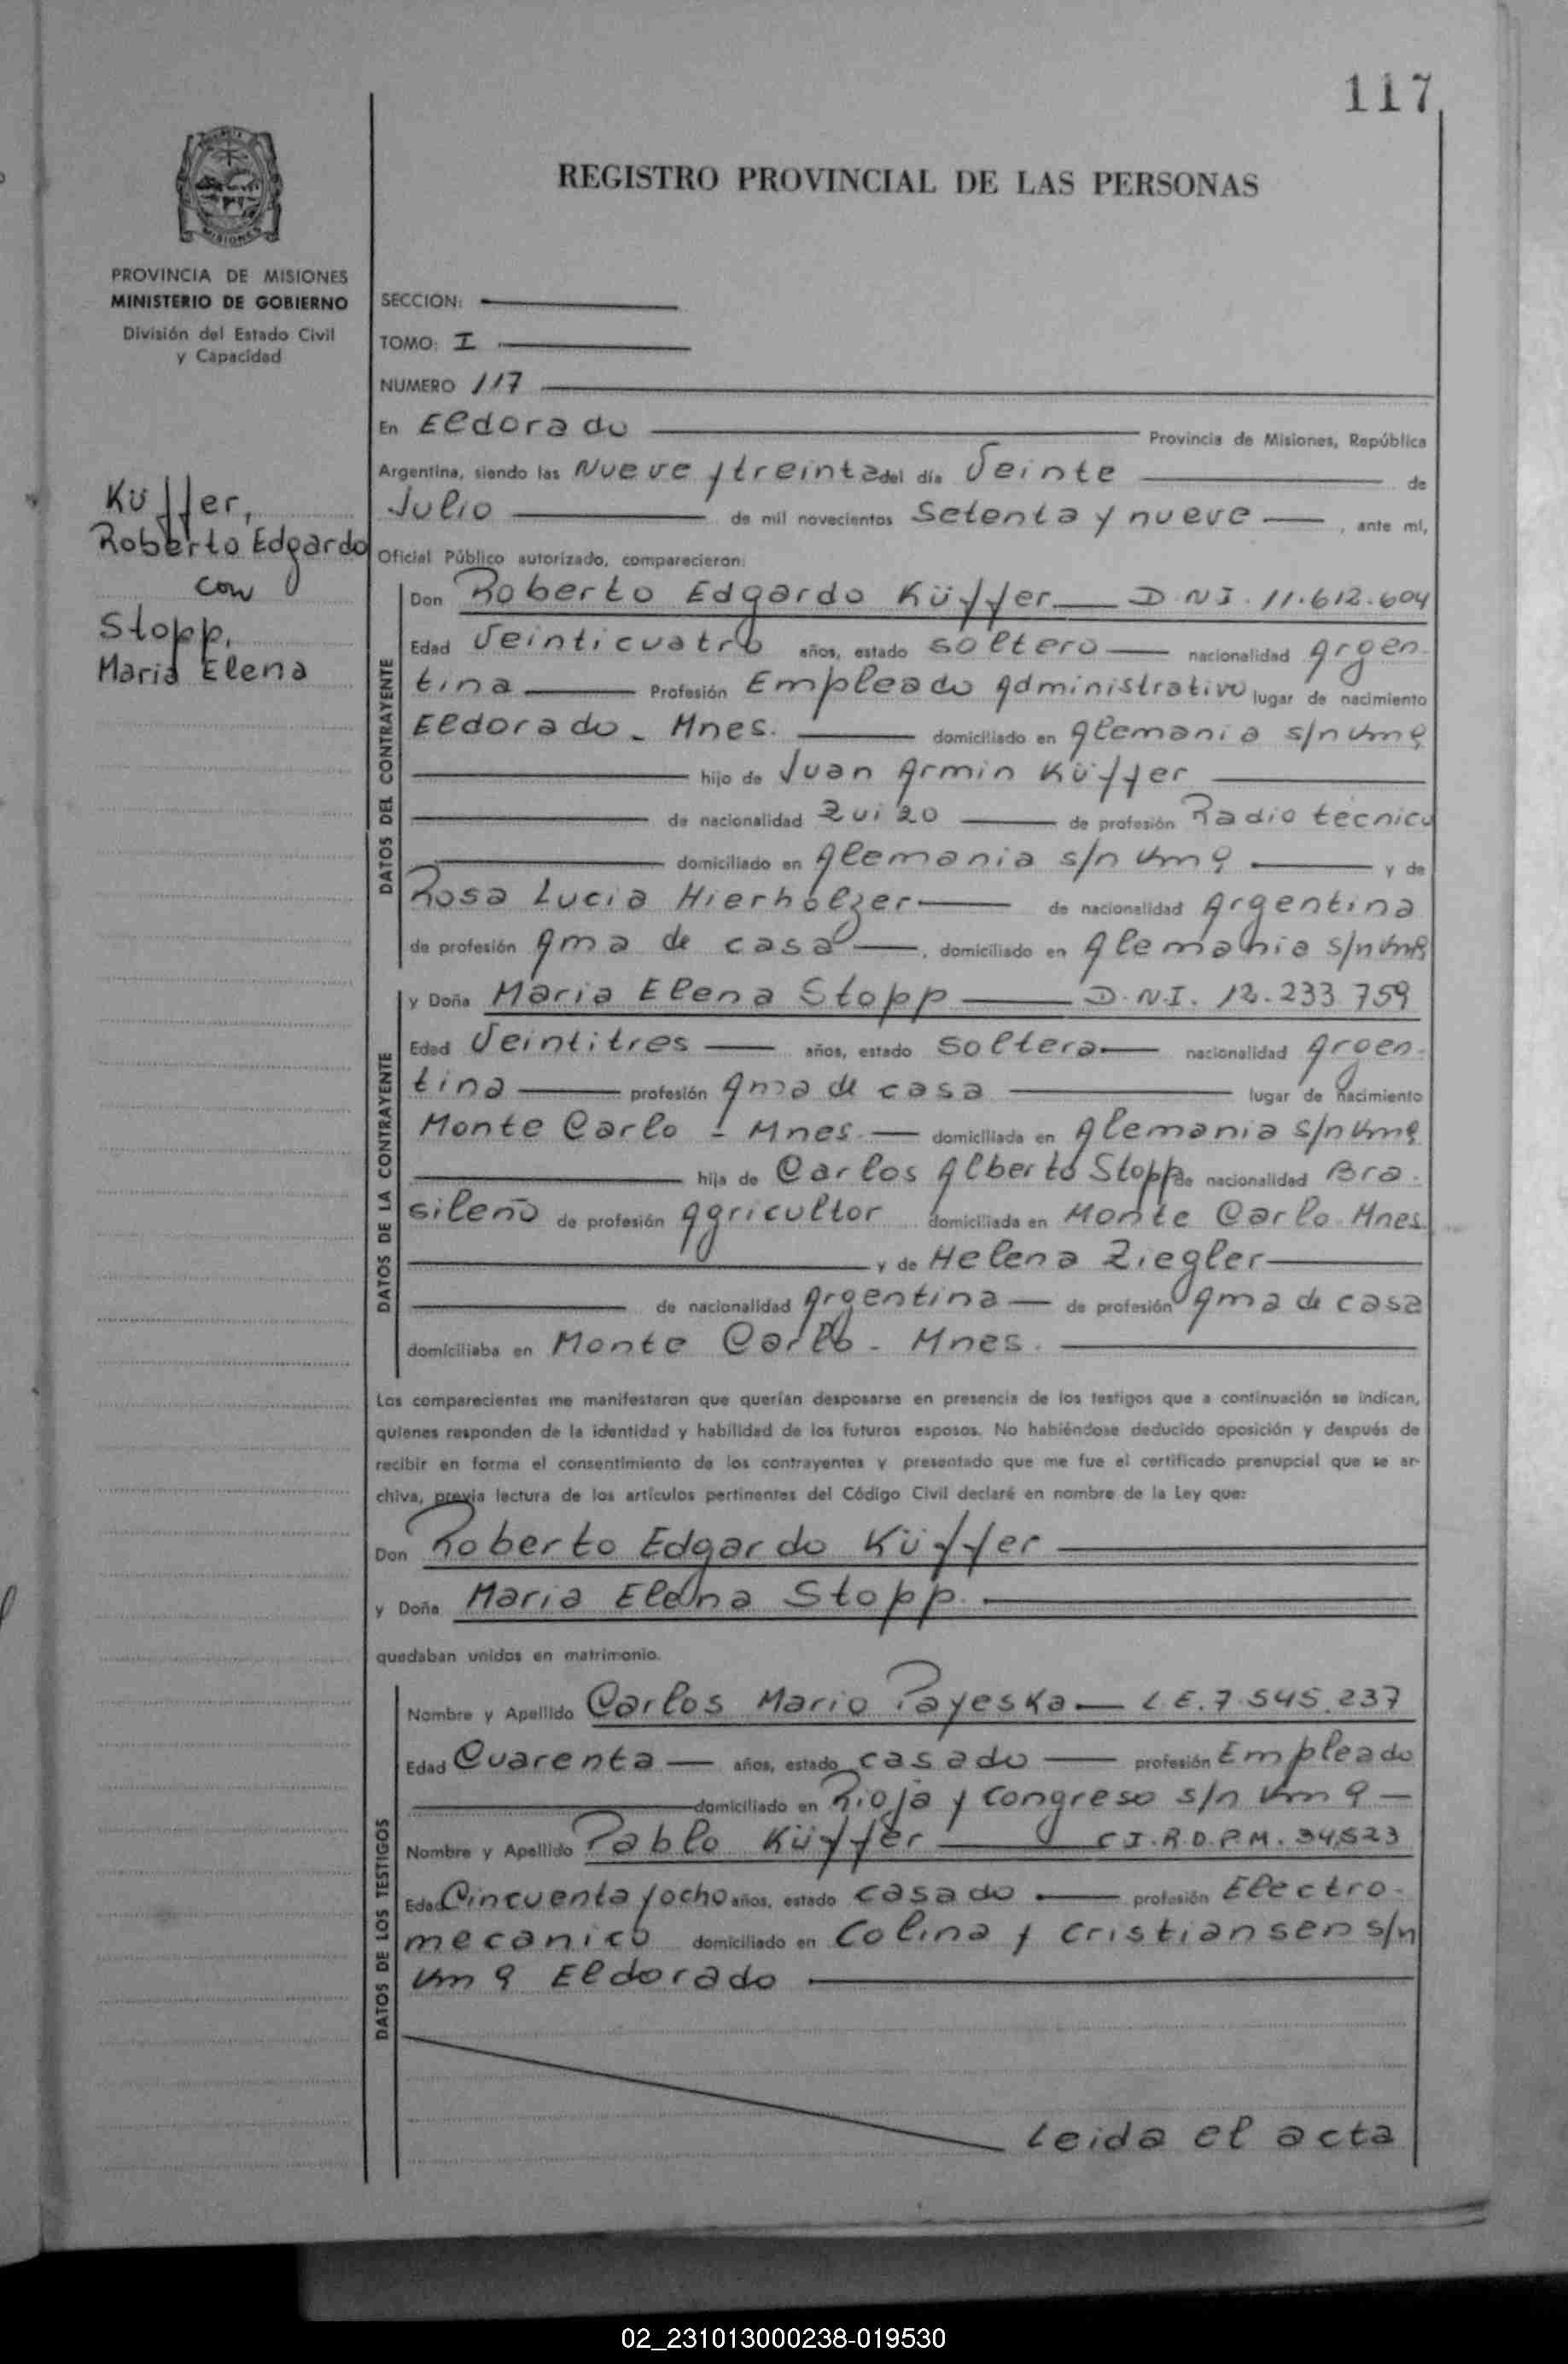 117
REGISTRO PROVINCIAL DE LAS PERSONAS
MISIONES
PROVINCIA DE MISIONES
MINISTERIO DE GOBIERNO
División del Estado Civil
y Capacidad
Küffer,
Roberto Edgardo
con
Stopp,
Maria Elena
SECCION:
TOMO: I
NUMERO 117
En Eldorado Provincia de Misiones, República
Argentina, siendo las Nueve y treinta del día Veinte de
Julio de mil novecientos Setenta y nueve, ante mí,
Oficial Público autorizado, comparecieron:
DATOS DEL CONTRAYENTE
Don Roberto Edgardo Küffer D.N.I. 11.612.604
Edad Veinticuatro años, estado soltero nacionalidad Argen-
tina Profesión Empleado Administrativo lugar de nacimiento
Eldorado - Mnes. domiciliado en Alemania s/n Km 9
hijo de Juan Armin Küffer
de nacionalidad Zuizo de profesión Radio técnico
domiciliado en Alemania s/n Km 9 y de
Rosa Lucia Hierholzer de nacionalidad Argentina
de profesión Ama de casa, domiciliado en Alemania s/n Km 9
DATOS DE LA CONTRAYENTE
y Doña Maria Elena Stopp D.N.I. 12.233.759
Edad Veintitres años, estado soltera nacionalidad Argen-
tina profesión Ama de casa lugar de nacimiento
Monte Carlo - Mnes. domiciliada en Alemania s/n Km 9
hija de Carlos Alberto Stopp de nacionalidad Bra-
sileño de profesión Agricultor domiciliada en Monte Carlo-Mnes
y de Helena Ziegler
de nacionalidad Argentina de profesión Ama de casa
domiciliaba en Monte Carlo - Mnes.
Los comparecientes me manifestaron que querían desposarse en presencia de los testigos que a continuación se indican,
quienes responden de la identidad y habilidad de los futuros esposos. No habiéndose deducido oposición y después de
recibir en forma el consentimiento de los contrayentes y presentado que me fue el certificado prenupcial que se ar-
chiva, previa lectura de los artículos pertinentes del Código Civil declaré en nombre de la Ley que:
Don Roberto Edgardo Küffer
y Doña Maria Elena Stopp.
quedaban unidos en matrimonio.
DATOS DE LOS TESTIGOS
Nombre y Apellido Carlos Mario Payeska L.E. 7.545.237
Edad Cuarenta años, estado casado profesión Empleado
domiciliado en Rioja y Congreso s/n Km 9
Nombre y Apellido Pablo Küffer C.I.R.D.P.M. 34.523
Edad Cincuenta y ocho años, estado casado profesión Electro-
mecanico domiciliado en Colina y Cristiansen s/n
Km 9 Eldorado
Leida el acta
02_231013000238-019530